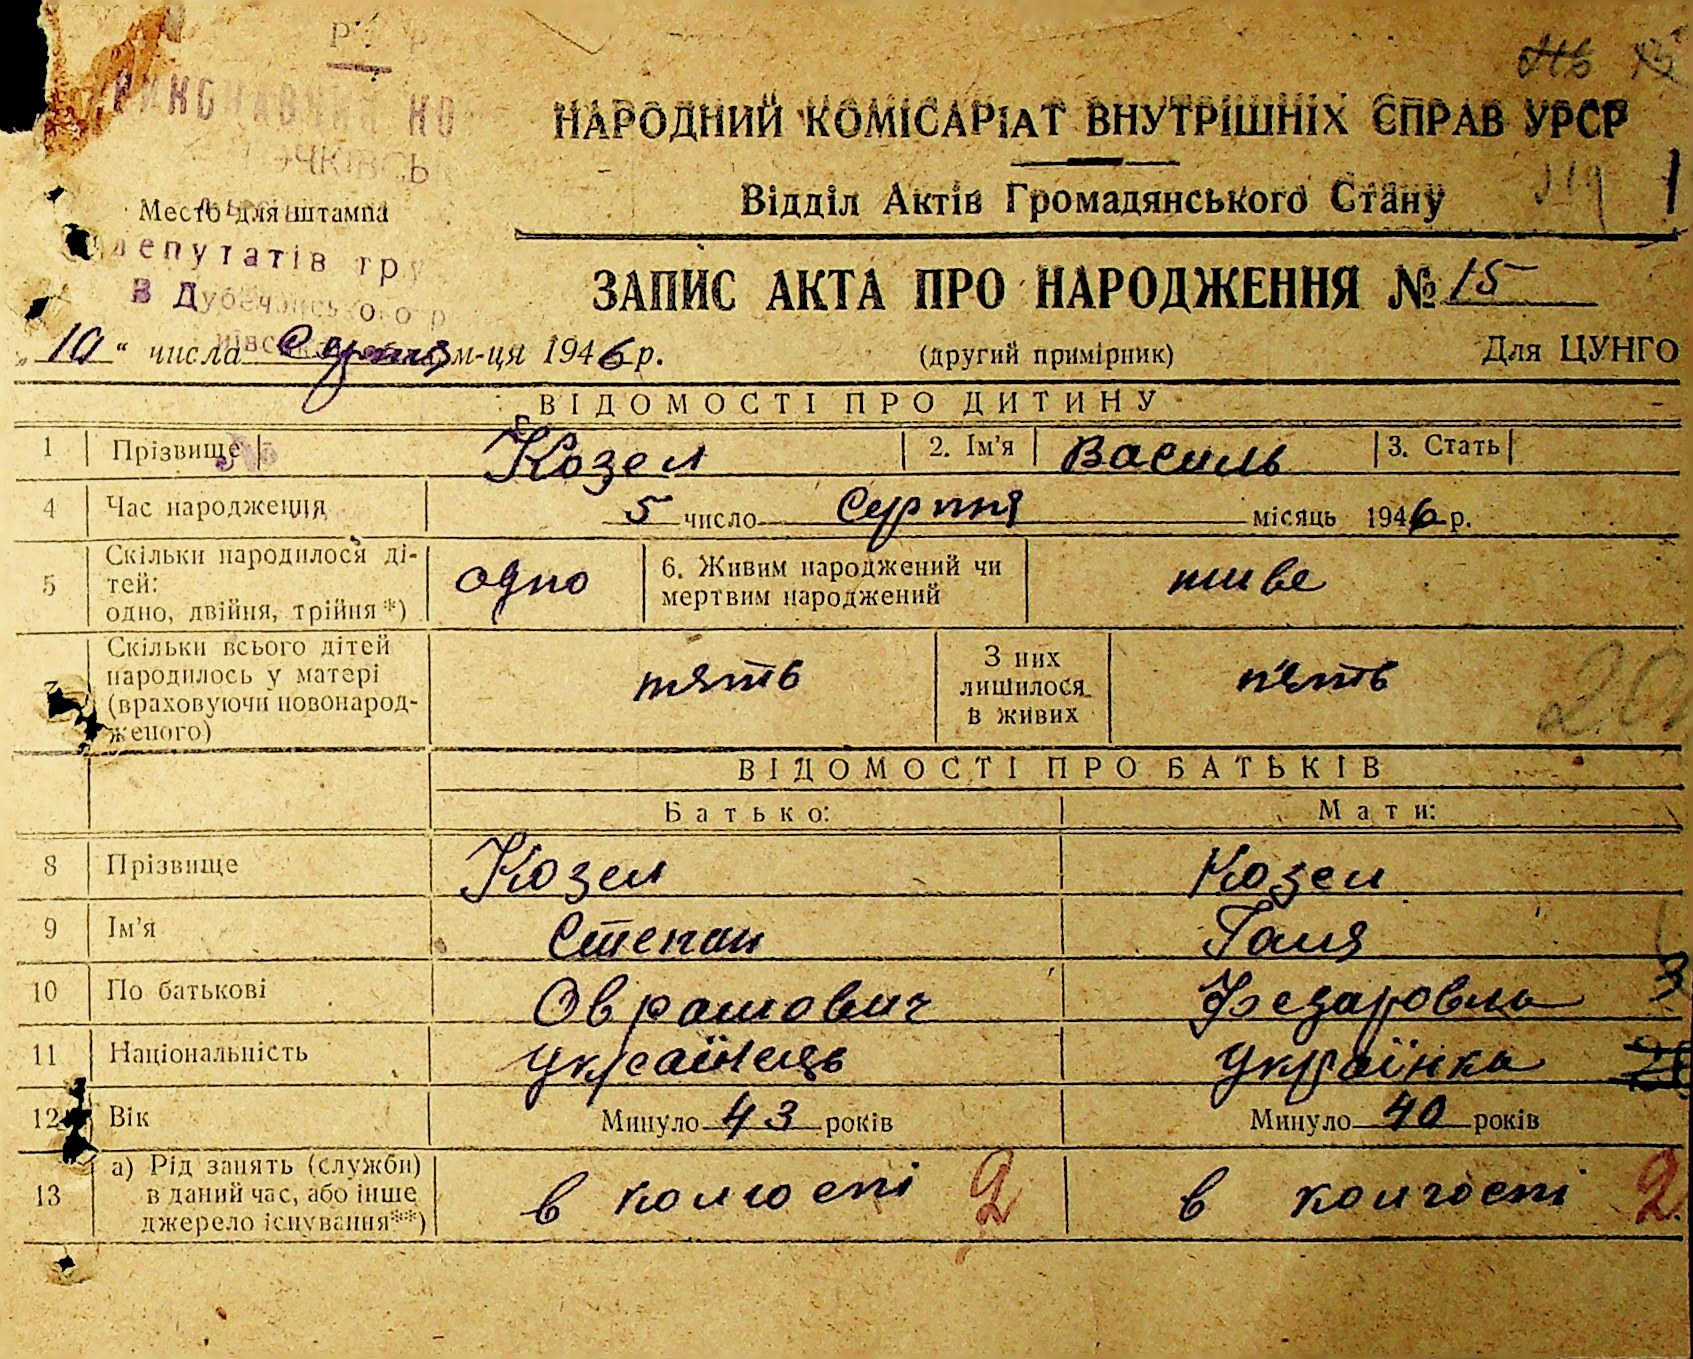 НАРОДНИЙ КОМІСАРІАТ ВНУТРІШНІХ СПРАВ УРСР
Відділ Актів Громадянського Стану
Место для штампа
депутатів тру
ЗАПИС АКТА ПРО НАРОДЖЕННЯ № 15
„10“ числа Серпня м-ця 1946 р. (другий примірник) Для ЦУНГО
ВІДОМОСТІ ПРО ДИТИНУ
1 Прізвище Козел 2. Ім'я Василь 3. Стать
4 Час народження 5 число Серпня місяць 1946 р.
5 Скільки народилося ді-
тей:
одно, двійня, трійня*) одно 6. Живим народжений чи
мертвим народжений живе
Скільки всього дітей
народилось у матері
(враховуючи новонарод-
женого) пять З них
лишилося
в живих п'ять
ВІДОМОСТІ ПРО БАТЬКІВ
Батько: Мати:
8 Прізвище Козел Козел
9 Ім'я Степан Галя
10 По батькові Оврамович Федаровна
11 Національність Українець Українка
12 Вік Минуло 43 років Минуло 40 років
13 а) Рід занять (служби)
в даний час, або інше
джерело існування**) в колгоспі 2 в колгоспі 2